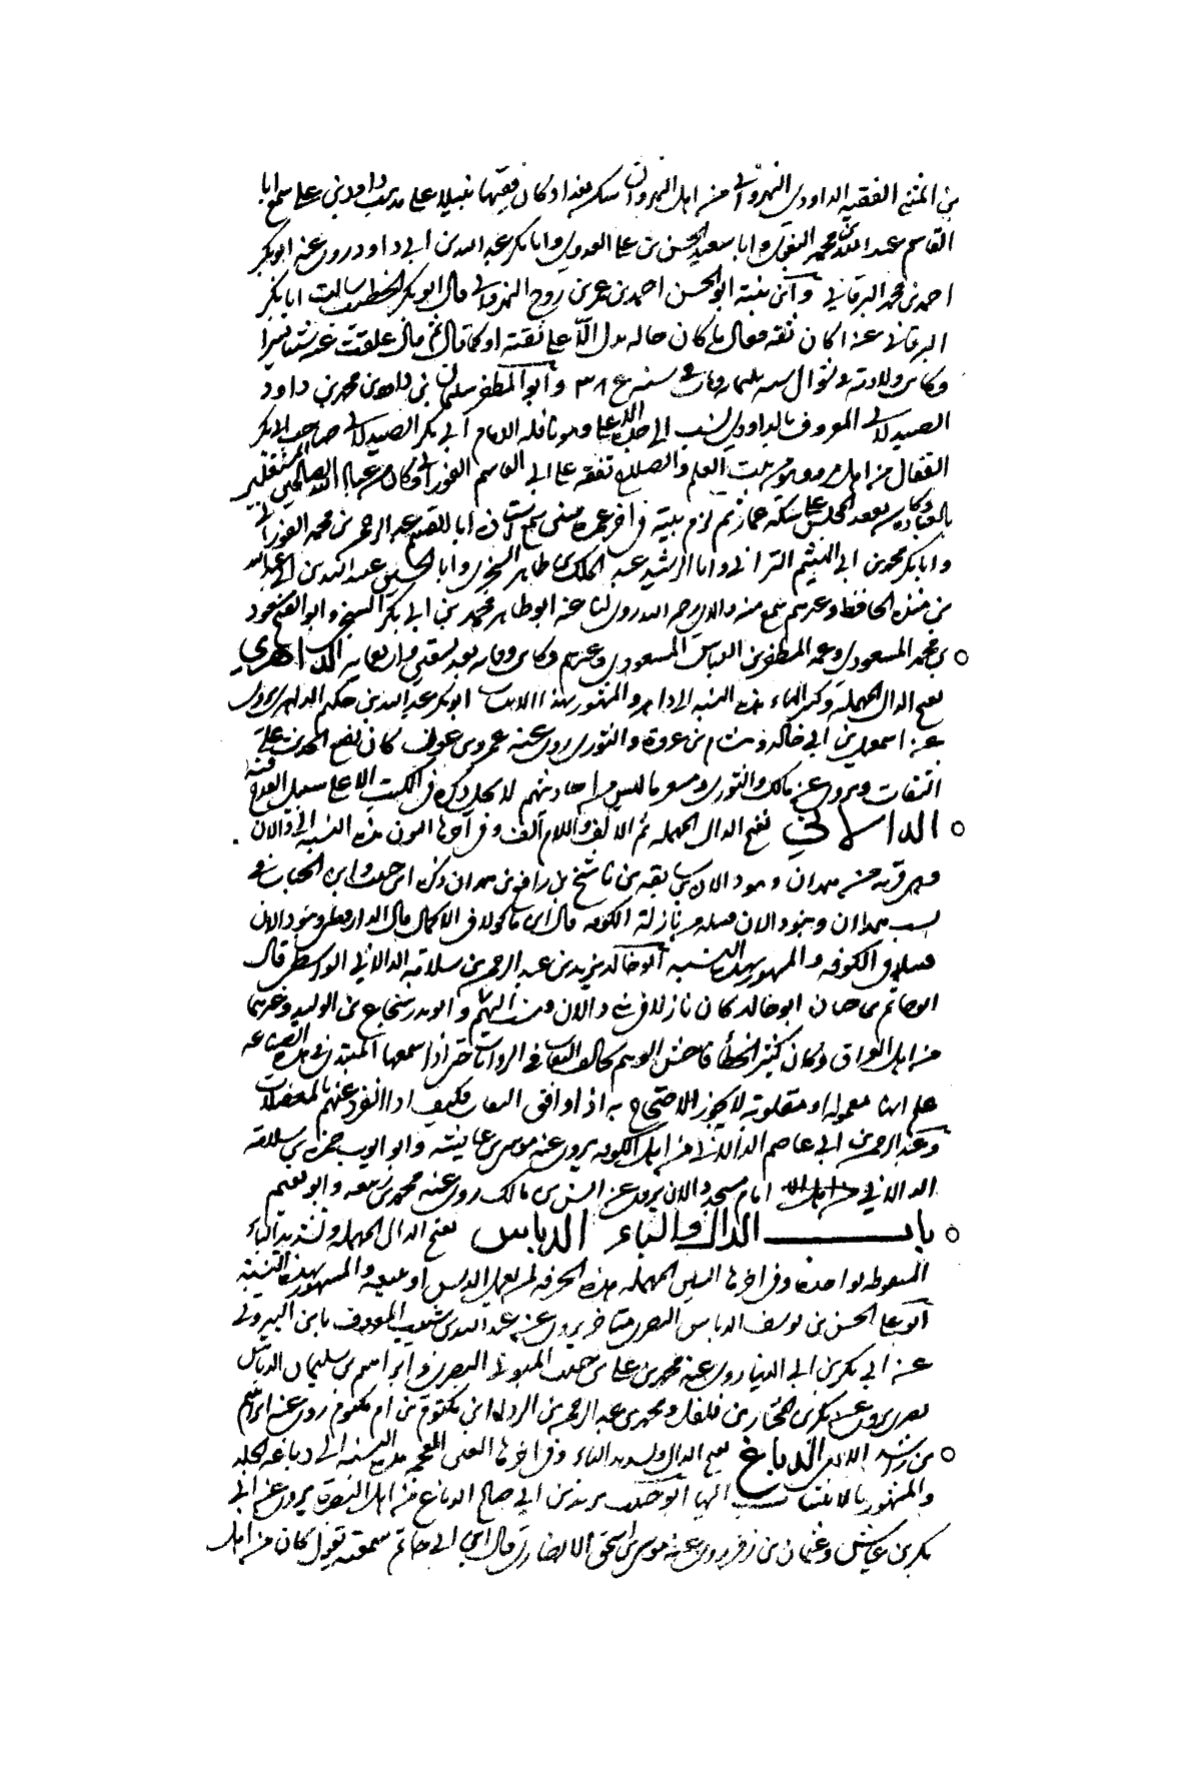 بن المثنى الفقيه الداودي النهرواني من اهل النهروان سكن بغداد وكان فقيها نبيلا على مذهب داود بن علي سمع ابا
القاسم عبد الله بن محمد البغوي وابا سعيد الحسن بن علي العدوي وابا بكر عبد الله بن ابي داود روى عنه ابو بكر
احمد بن محمد البرقاني وابن بنته ابو الحسن احمد بن عمر بن روح النهرواني قال ابو بكر الخطيب سالت ابا بكر
البرقاني عنه اكان ثقة فقال ما كان حاله يدل الا على ثقته او كما قال ثم قال علقت عنه شيئا يسيرا
وكانت ولادته في شوال سنة ومات في سنة وابو المظفر سليمان بن داود بن محمد بن داود
الصيدلاني المعروف بالداودي نسب الى جده الاعلى وهو نافلة الامام ابي بكر الصيدلاني صاحب ابي بكر
القفال من اهل مرو وهو من بيت العلم والصلاح تفقه على ابي القاسم الفوراني وكان من عباد الله الصالحين المشتغلين
بالعبادة وكان يقعد للمجلس على سكة عمار ثم لزم بيته في اخر عمره ابا القاسم عبد الرحمن بن محمد الفوراني
وابا بكر محمد بن ابي الهيثم الترابي وابا الرشيد عبد الملك بن طاهر السجزي وابا الحسين عبد الله بن ابي عبد الله
بن منده الحافظ وغيرهم سمع منه والدي رحمه الله روى لنا عنه ابو طاهر محمد بن ابي بكر السنجي وابو الفتح مسعود
بن محمد المسعودي وعمه المظفر بن العباس المسعودي وغيرهم وكانت وفاته بعد سنة تسعين واربعمائة الداهري
بفتح الدال المهملة وكسر الهاء هذه النسبة الى داهر والمشهور بهذا الانتساب ابو بكر عبد الله بن حكيم الداهري يروي
عن اسمعيل بن ابي خالد وهشام بن عروة والثوري روى عنه عمرو بن عون كان يضع الحديث على
الثقات ويروي عن مالك والثوري ومسعر ما ليس من احاديثهم لا يحل ذكره في الكتب الا على سبيل القدح فيه
الدالاني بفتح الدال المهملة ثم الالف واللام الف وفي اخرها النون هذه النسبة الى دالان
وهي قرية من همدان وهو دالان بن سابقة بن ناشج بن رافع بن همدان ذكره ابن حبيب وابن الحباب في
نسب همدان وبنو دالان قبيلة نازلة الكوفة قال ابن ماكولا في الاكمال قال الدارقطني وبنو دالان
قبيل في الكوفة والمشهور بهذه النسبة ابو خالد يزيد بن عبد الرحمن بن سلامة الدالاني الواسطي قال
ابو حاتم بن حبان ابو خالد كان نازلا في بني دالان وابو بدر شجاع بن الوليد وغيرهما
من اهل العراق وكان كثير الخطأ فاحش الوهم يخالف الثقات في الروايات حتى اذا سمعها المبتدئ في هذه الصناعة
علم انها معمولة او مقلوبة لا يجوز الاحتجاج به اذا وافق الثقات فكيف اذا انفرد عنهم بالمعضلات
وعبد الرحمن بن ابي عاصم الدالاني من اهل الكوفة يروي عنه موسى بن ابي عائشة وابو ايوب حمزة بن سلامة
الدالاني امام مسجد دالان يروي عن انس بن مالك روى عنه محمد بن ربيعة وابو نعيم
باب الدال والباء الدباس بفتح الدال المهملة وتشديد الباء
المنقوطة بواحدة وفي اخرها السين المهملة هذه الحرفة لمن يعمل الدبس او يبيعه والمشهور بهذه النسبة
ابو علي الحسن بن يوسف الدباس البصري متاخر يروي عن عبد الله بن شعيب المعروف بابن البيروتي
عن ابي بكر بن ابي الدنيا روى عنه محمد بن علي بن حبيب المتوثي البصري وابراهيم بن سليمان الدباس
بصري يروي عن بكر بن المختار بن فلفل ومحمد بن عبد الرحمن بن الرداد ابن مكتوم بن ام مكتوم روى عنه ابراهيم
بن راشد الادمي الدباغ بفتح الدال وتشديد الباء وفي اخرها الغين المعجمة هذه النسبة الى دباغة الجلد
والمشهور بالانتساب اليها ابو حبيب يزيد بن ابي صالح الدباغ من اهل البصرة يروي عن ابي
بكر بن عياش وعثمان بن زفر روى عنه موسى بن اسحق الانصاري قال ابن ابي حاتم سمعته يقول كان من اهل